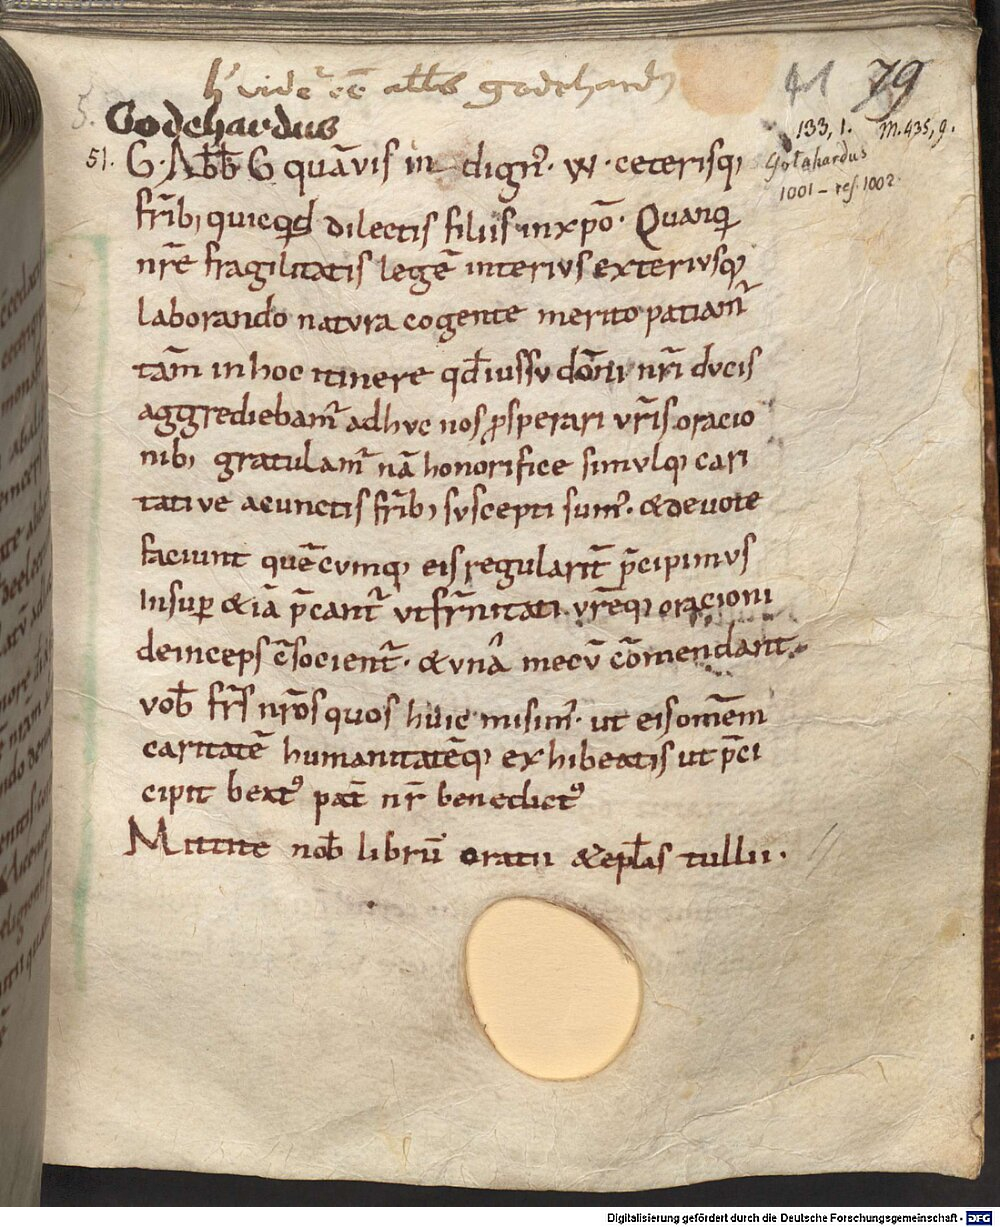 h' videt̄ ēē abb̄s godehardi
41 79
5.
Godehardus
133, 1. M. 435, 9.
Gotahardus
1001 – ref. 1002.
51. G · Abb G quāvis in dign' · W · ceterisq;
fr̄ib; quicq̇d dilectis filiis in xp̄o · Quaq̄
nr̄e fragilitatis legē interius exteriusq;
laborando natura cogente merito patiam'
tām in hoc itinere qđ iussu dōni nr̄i ducis
aggrediebam' adhuc nos ꝓsperari vr̄is oracio
nib; gratulam' nā honorifice simulq; cari
tative a cunctis fr̄ib; suscepti sum' · & devote
faciunt quēcumq; eis regularit̄ p̄cipimus
Insuꝑ & iā p̄cant̄ ut fr̄nitati vr̄eq; oracioni
deinceps c̄socient̄ · & unā mecū cōmendant
vob̄ fr̄s nr̄os quos huic misim' · ut eis om̄em
caritatē humanitatēq; exhibeatis ut p̄ci
cipit beat' pat̄ nr̄ benedict'
Mittite nob̄ librū oratii & epl̄as tullii ·
Digitalisierung gefördert durch die Deutsche Forschungsgemeinschaft - DFG